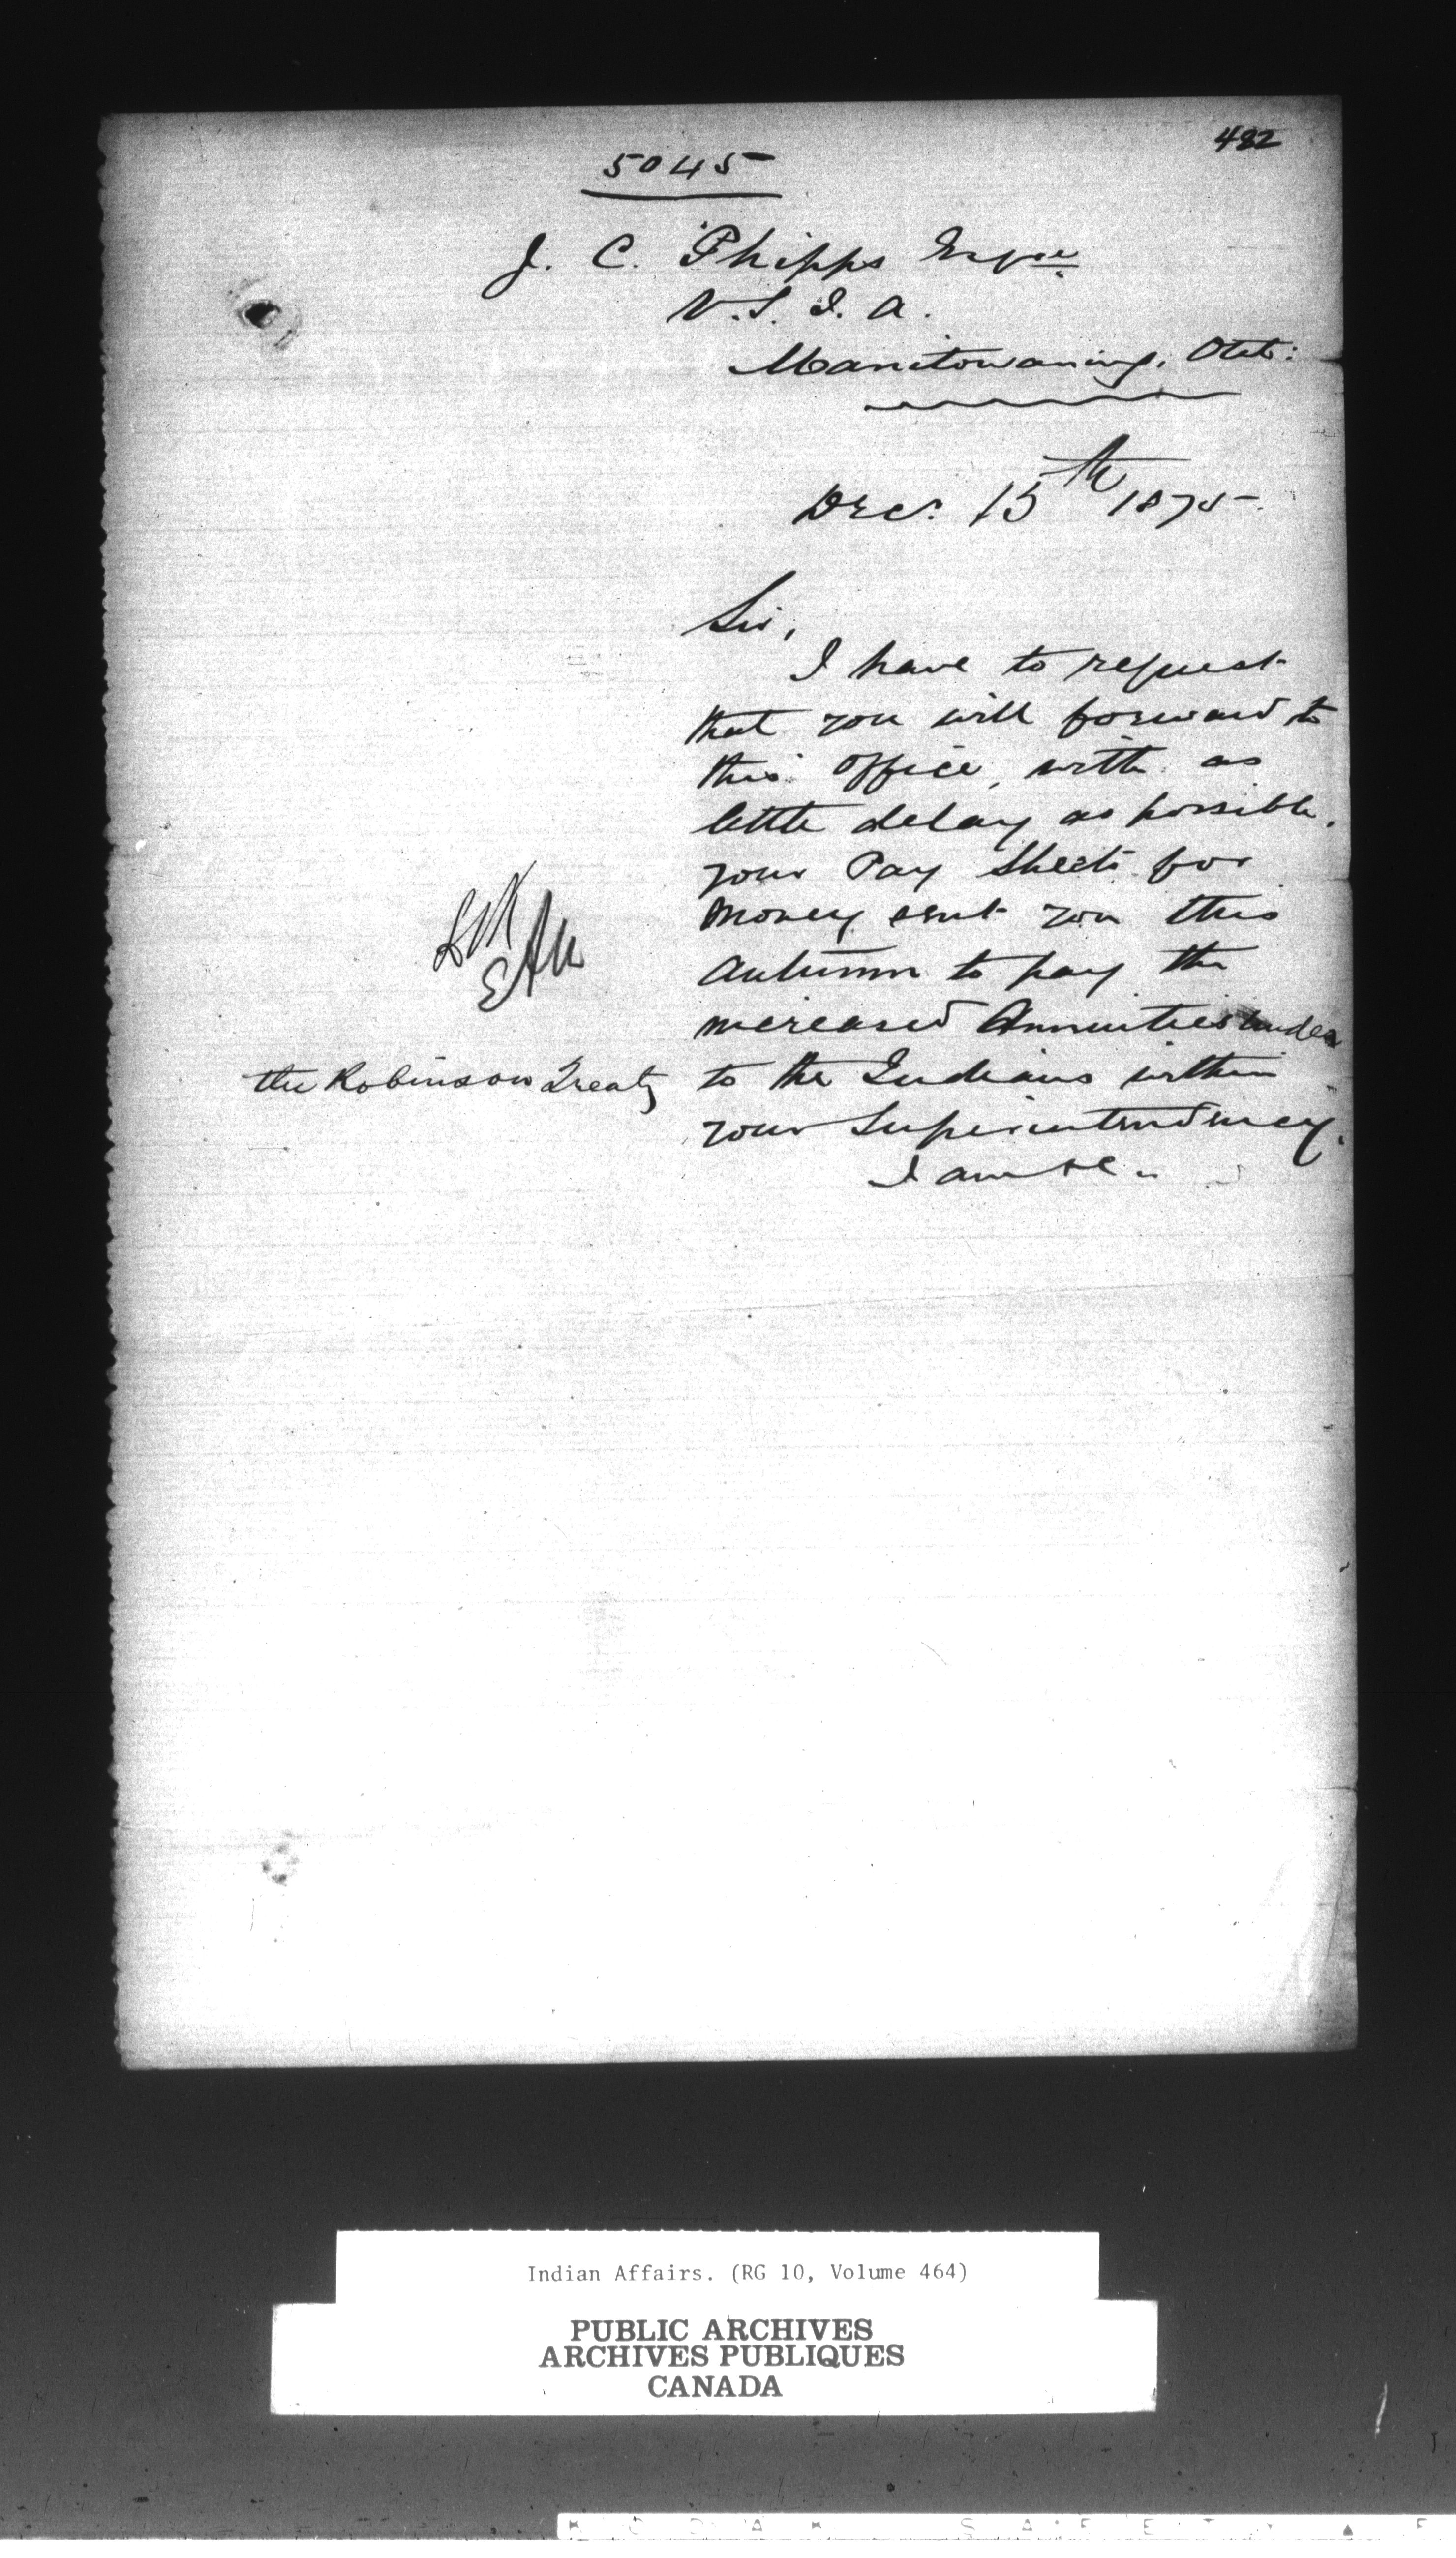 482
5045
J. C. Phipps Esqre
V. S. I. A.
Manitowaning, Ont:
Dec. 15th 1875.
Sir,
I have to request
that you will forward to
this office, with as
little delay as possible,
your Pay Sheets for
money sent you this
Autumn to pay the
increased Annuities under
the Robinson Treaty to the Indians within
your Superintendency.
I am &c.
Indian Affairs. (RG 10, Volume 464)
PUBLIC ARCHIVES
ARCHIVES PUBLIQUES
CANADA